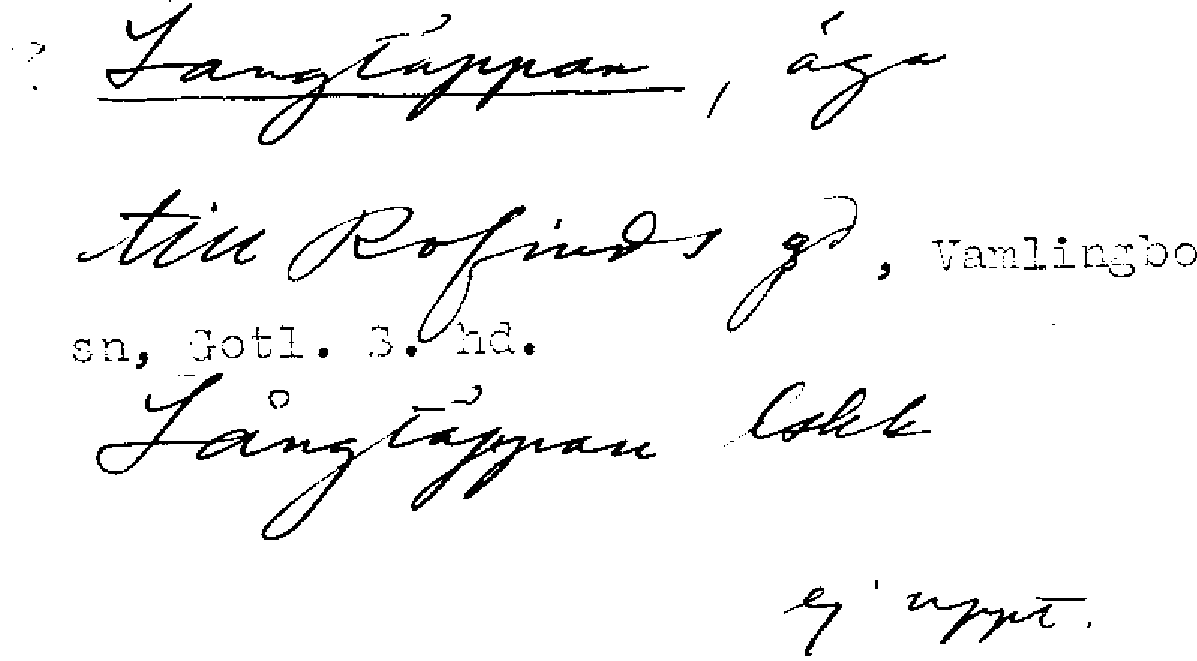 ? Langtäppan, äga
till Rofinds gd, Vamlingbo
sn, Gotl. S. hd.
Långtäppan Lskk
ej uppt.